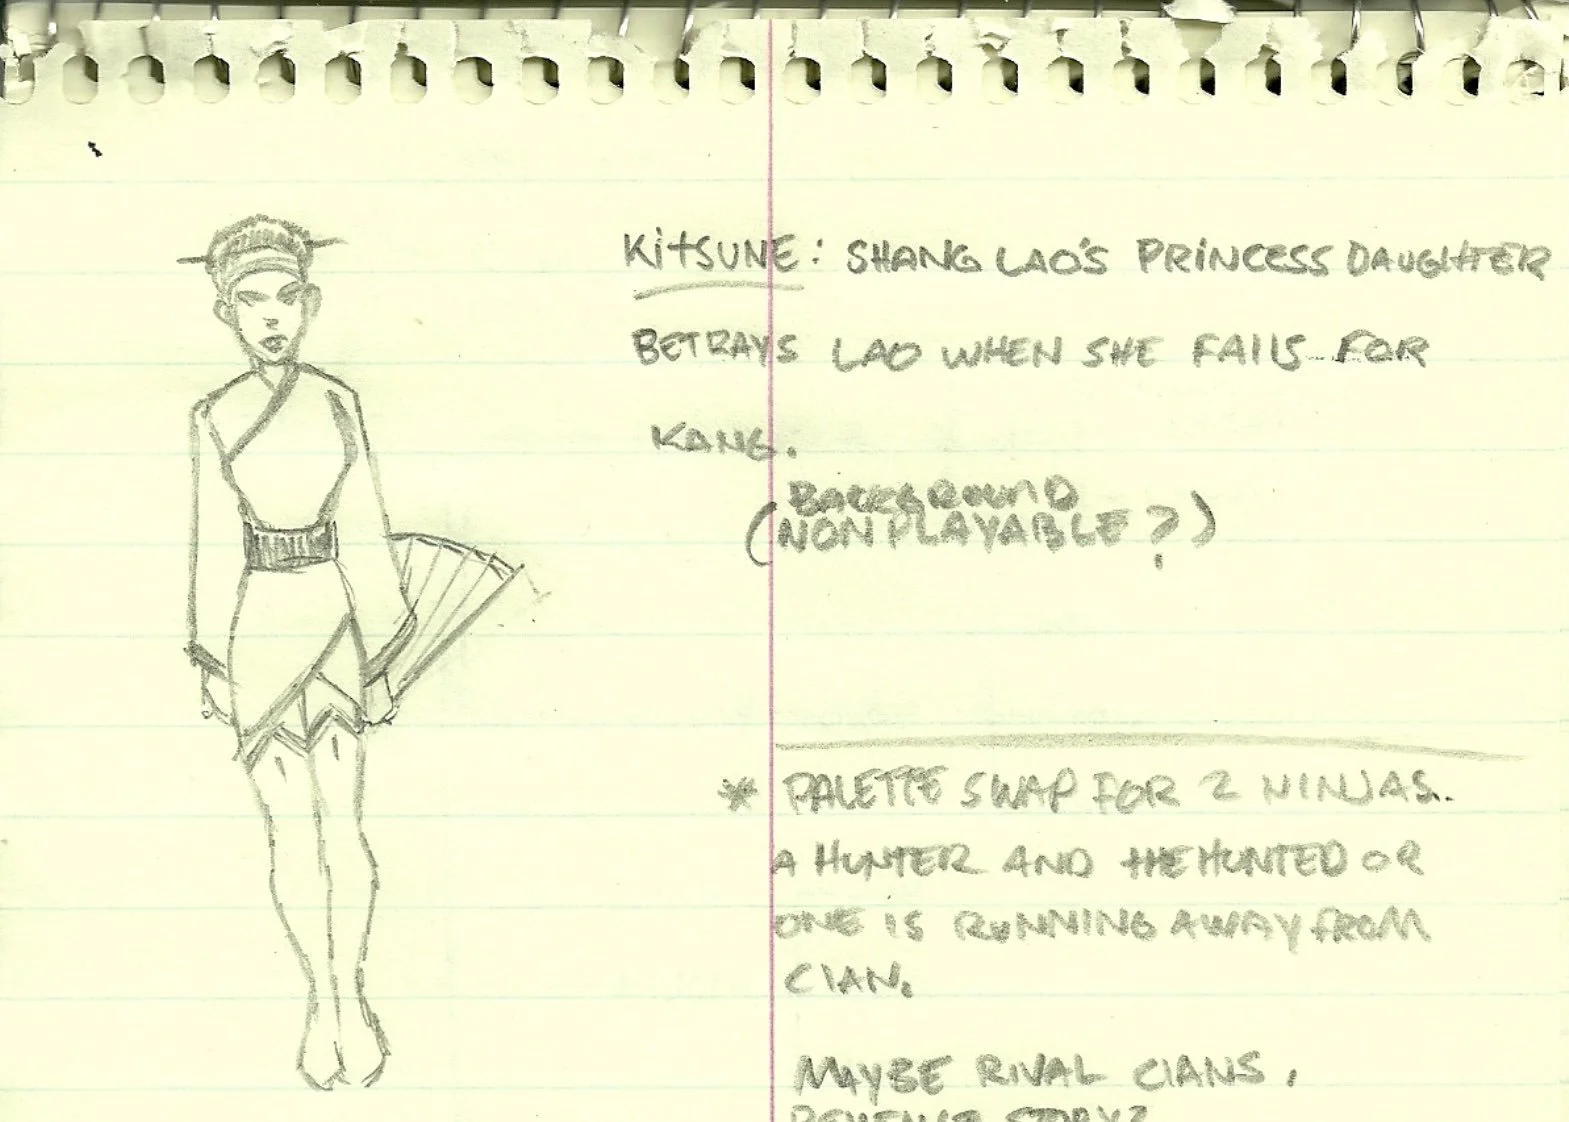 KITSUNE: SHANG LAO'S PRINCESS DAUGHTER
BETRAYS LAO WHEN SHE FALLS FOR
KANG.
BACKGROUND
(NONPLAYABLE?)
* PALETTE SWAP FOR 2 NINJAS..
A HUNTER AND THE HUNTED OR
ONE IS RUNNING AWAY FROM
CLAN.
MAYBE RIVAL CLANS.
REVENGE STORY?